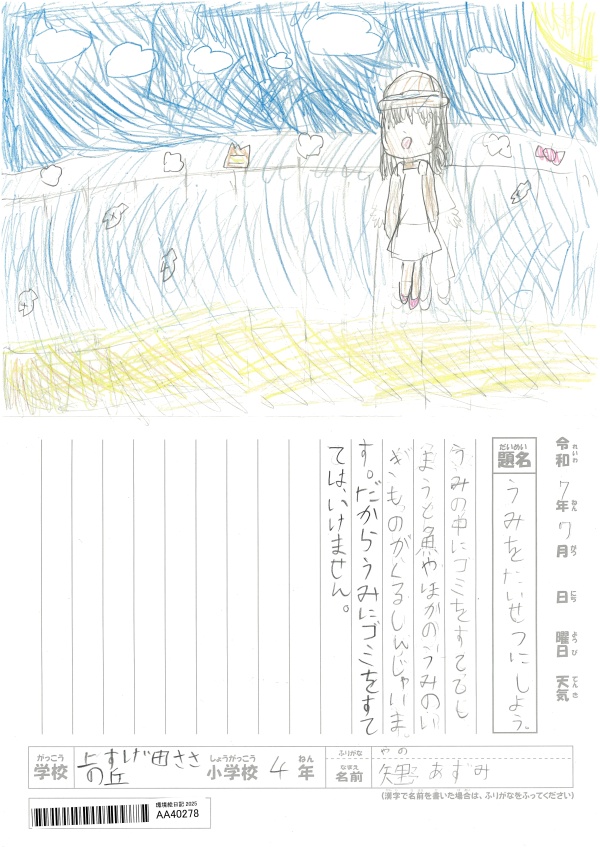 令和7年7月 日 曜日 天気
れいわ ねん がつ にち ようび てんき
だいめい
題名 うみをたいせつにしよう。
うみの中にゴミをすててし
まうと魚やほかのうみのい
きものがくるしんじゃいま
す。だからうみにゴミをすて
ては、いけません。
がっこう しょうがっこう ねん ふりがな やの
学校 小学校 4年
なまえ
名前 あずみ
(漢字で名前を書いた場合は、ふりがなをふってください)
環境絵日記 2025
AA40278